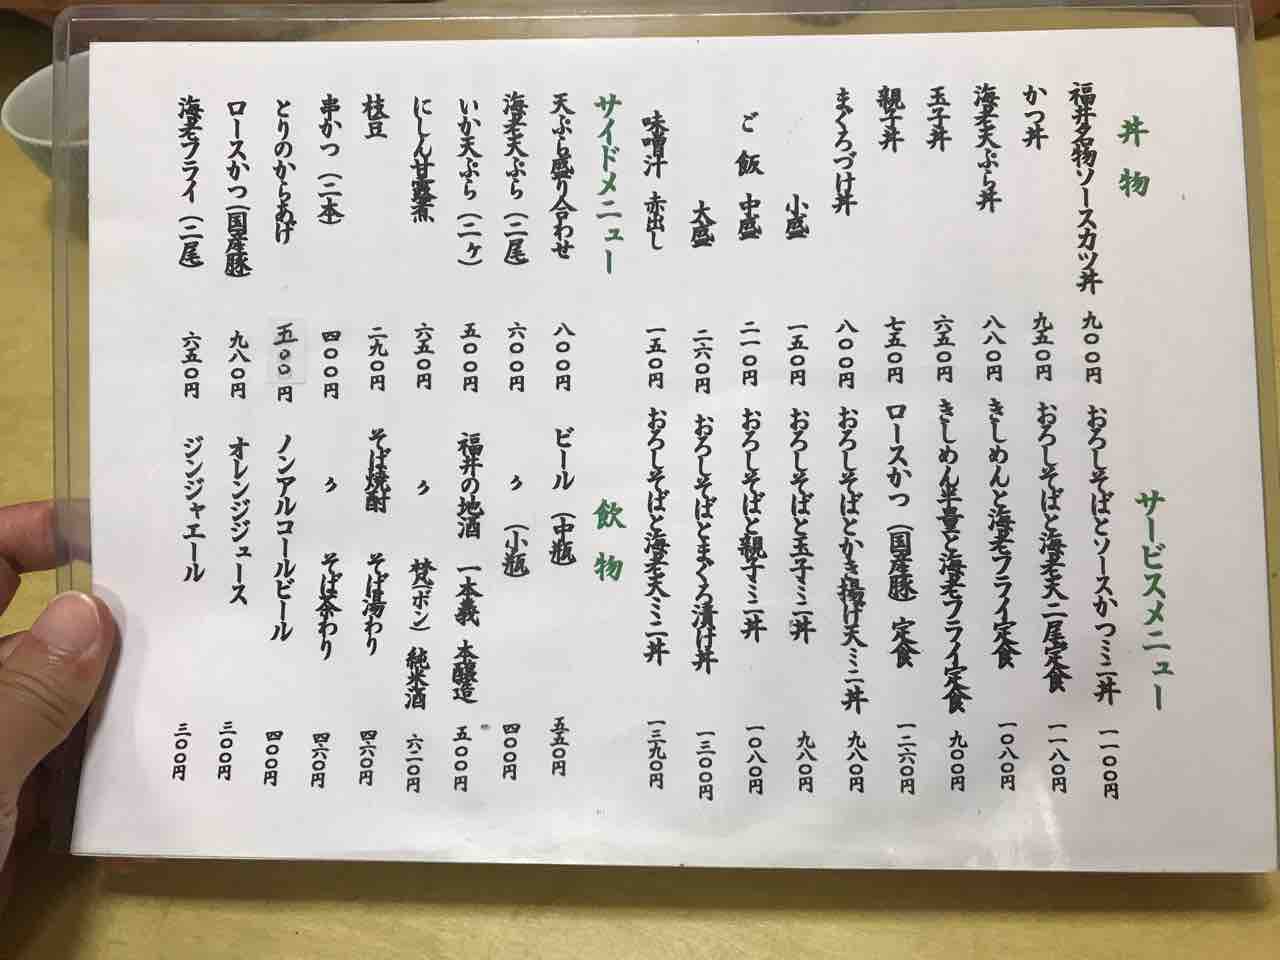 丼物
福井名物ソースカツ丼 九〇〇円
かつ丼 九五〇円
海老天ぷら丼 八八〇円
玉子丼 六五〇円
親子丼 七五〇円
まぐろづけ丼 八〇〇円
小盛 一五〇円
ご飯 中盛 二一〇円
大盛 二六〇円
味噌汁 赤出し 一五〇円
サイドメニュー
天ぷら盛り合わせ 八〇〇円
海老天ぷら(二尾) 六〇〇円
いか天ぷら(二ヶ) 五〇〇円
にしん甘露煮 六五〇円
枝豆 二九〇円
串かつ(二本) 四〇〇円
とりのからあげ 五〇〇円
ロースかつ(国産豚) 九八〇円
海老フライ(二尾) 六五〇円
サービスメニュー
おろしそばとソースかつミニ丼 一一〇〇円
おろしそばと海老天二尾定食 一一八〇円
きしめんと海老フライ定食 一〇八〇円
きしめん半量と海老フライ定食 九〇〇円
ロースかつ(国産豚)定食 一二六〇円
おろしそばとかき揚げ天ミニ丼 九八〇円
おろしそばと玉子ミニ丼 九八〇円
おろしそばと親子ミニ丼 一〇八〇円
おろしそばとまぐろ漬け丼 一三〇〇円
おろしそばと海老天ミニ丼 一三九〇円
飲物
ビール(中瓶) 五五〇円
〃 (小瓶) 四〇〇円
福井の地酒 一本義 本醸造 五〇〇円
〃 梵(ボン) 純米酒 六二〇円
そば焼酎 そば湯わり 四六〇円
〃 そば茶わり 四六〇円
ノンアルコールビール 四〇〇円
オレンジジュース 三〇〇円
ジンジャエール 三〇〇円